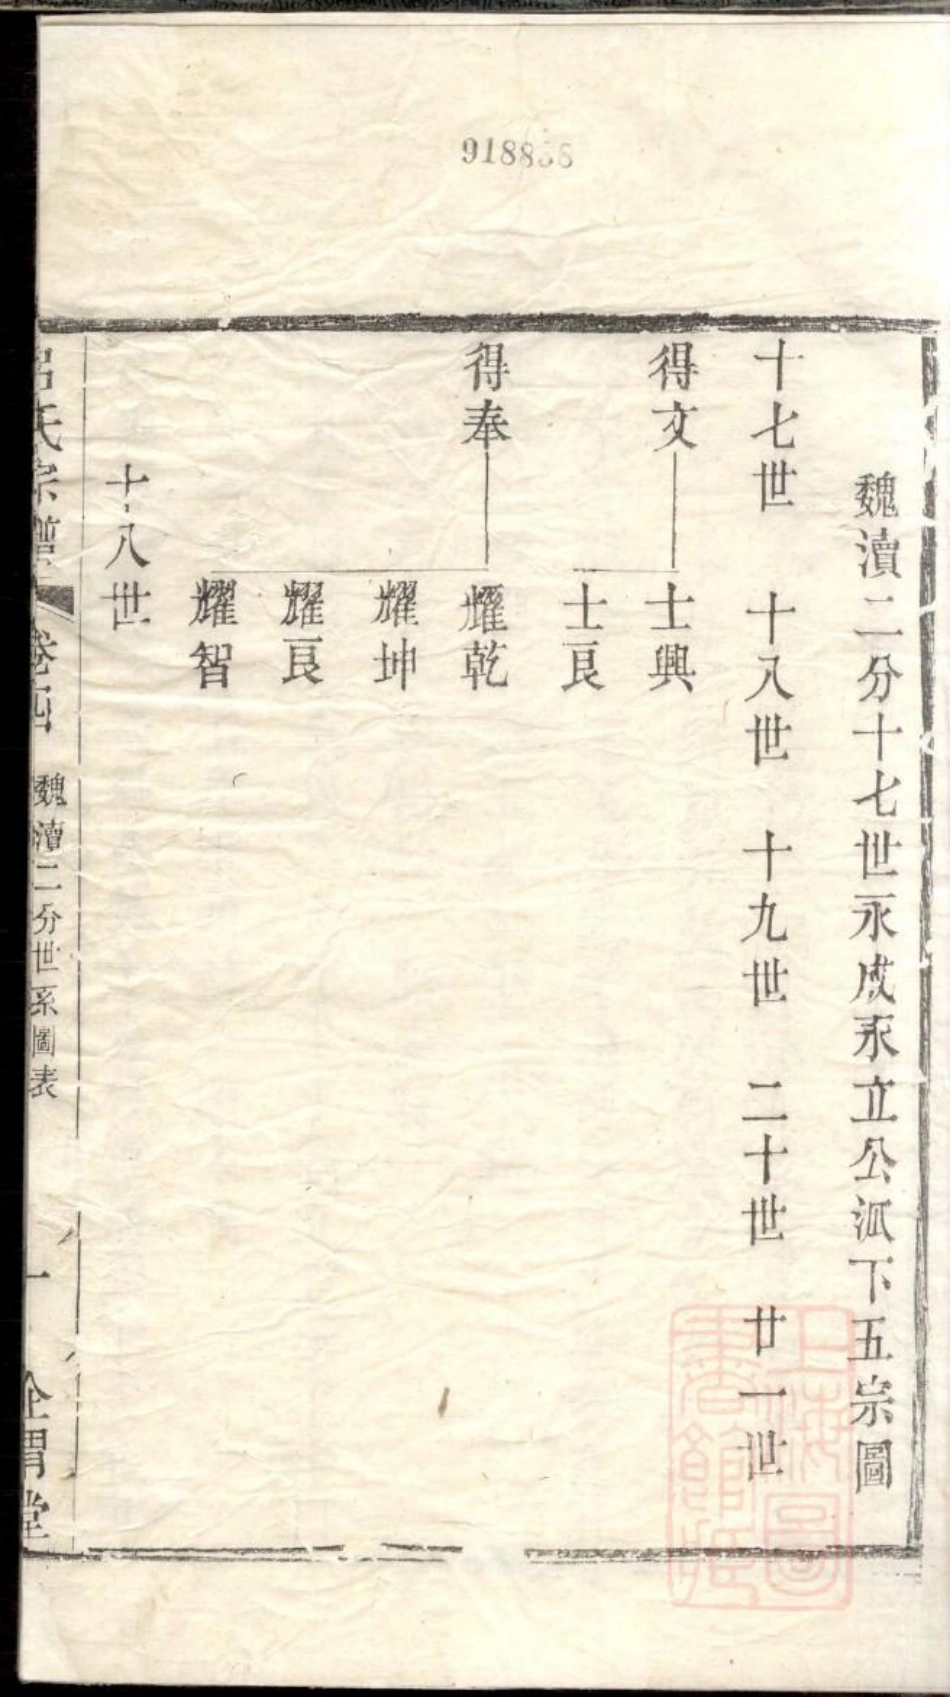 魏瀆二分十七世永成永立公派下五宗圖
十七世 十八世 十九世 二十世 廿一世
得文 士興
士良
得奉 耀乾
耀坤
耀良
耀智
十八世
呂氏宗譜 卷四 魏瀆二分世系圖表 一 企渭堂
上海圖
書館藏